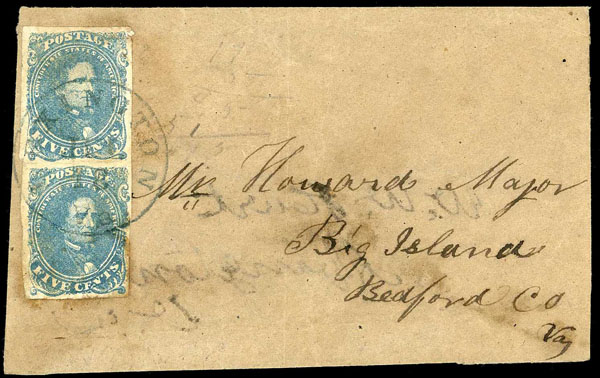 POSTAGE
CONFEDERATE STATES OF AMERICA
FIVE CENTS
POSTAGE
CONFEDERATE STATES OF AMERICA
FIVE CENTS
Mr Howard Major
Big Island
Bedford Co
Va